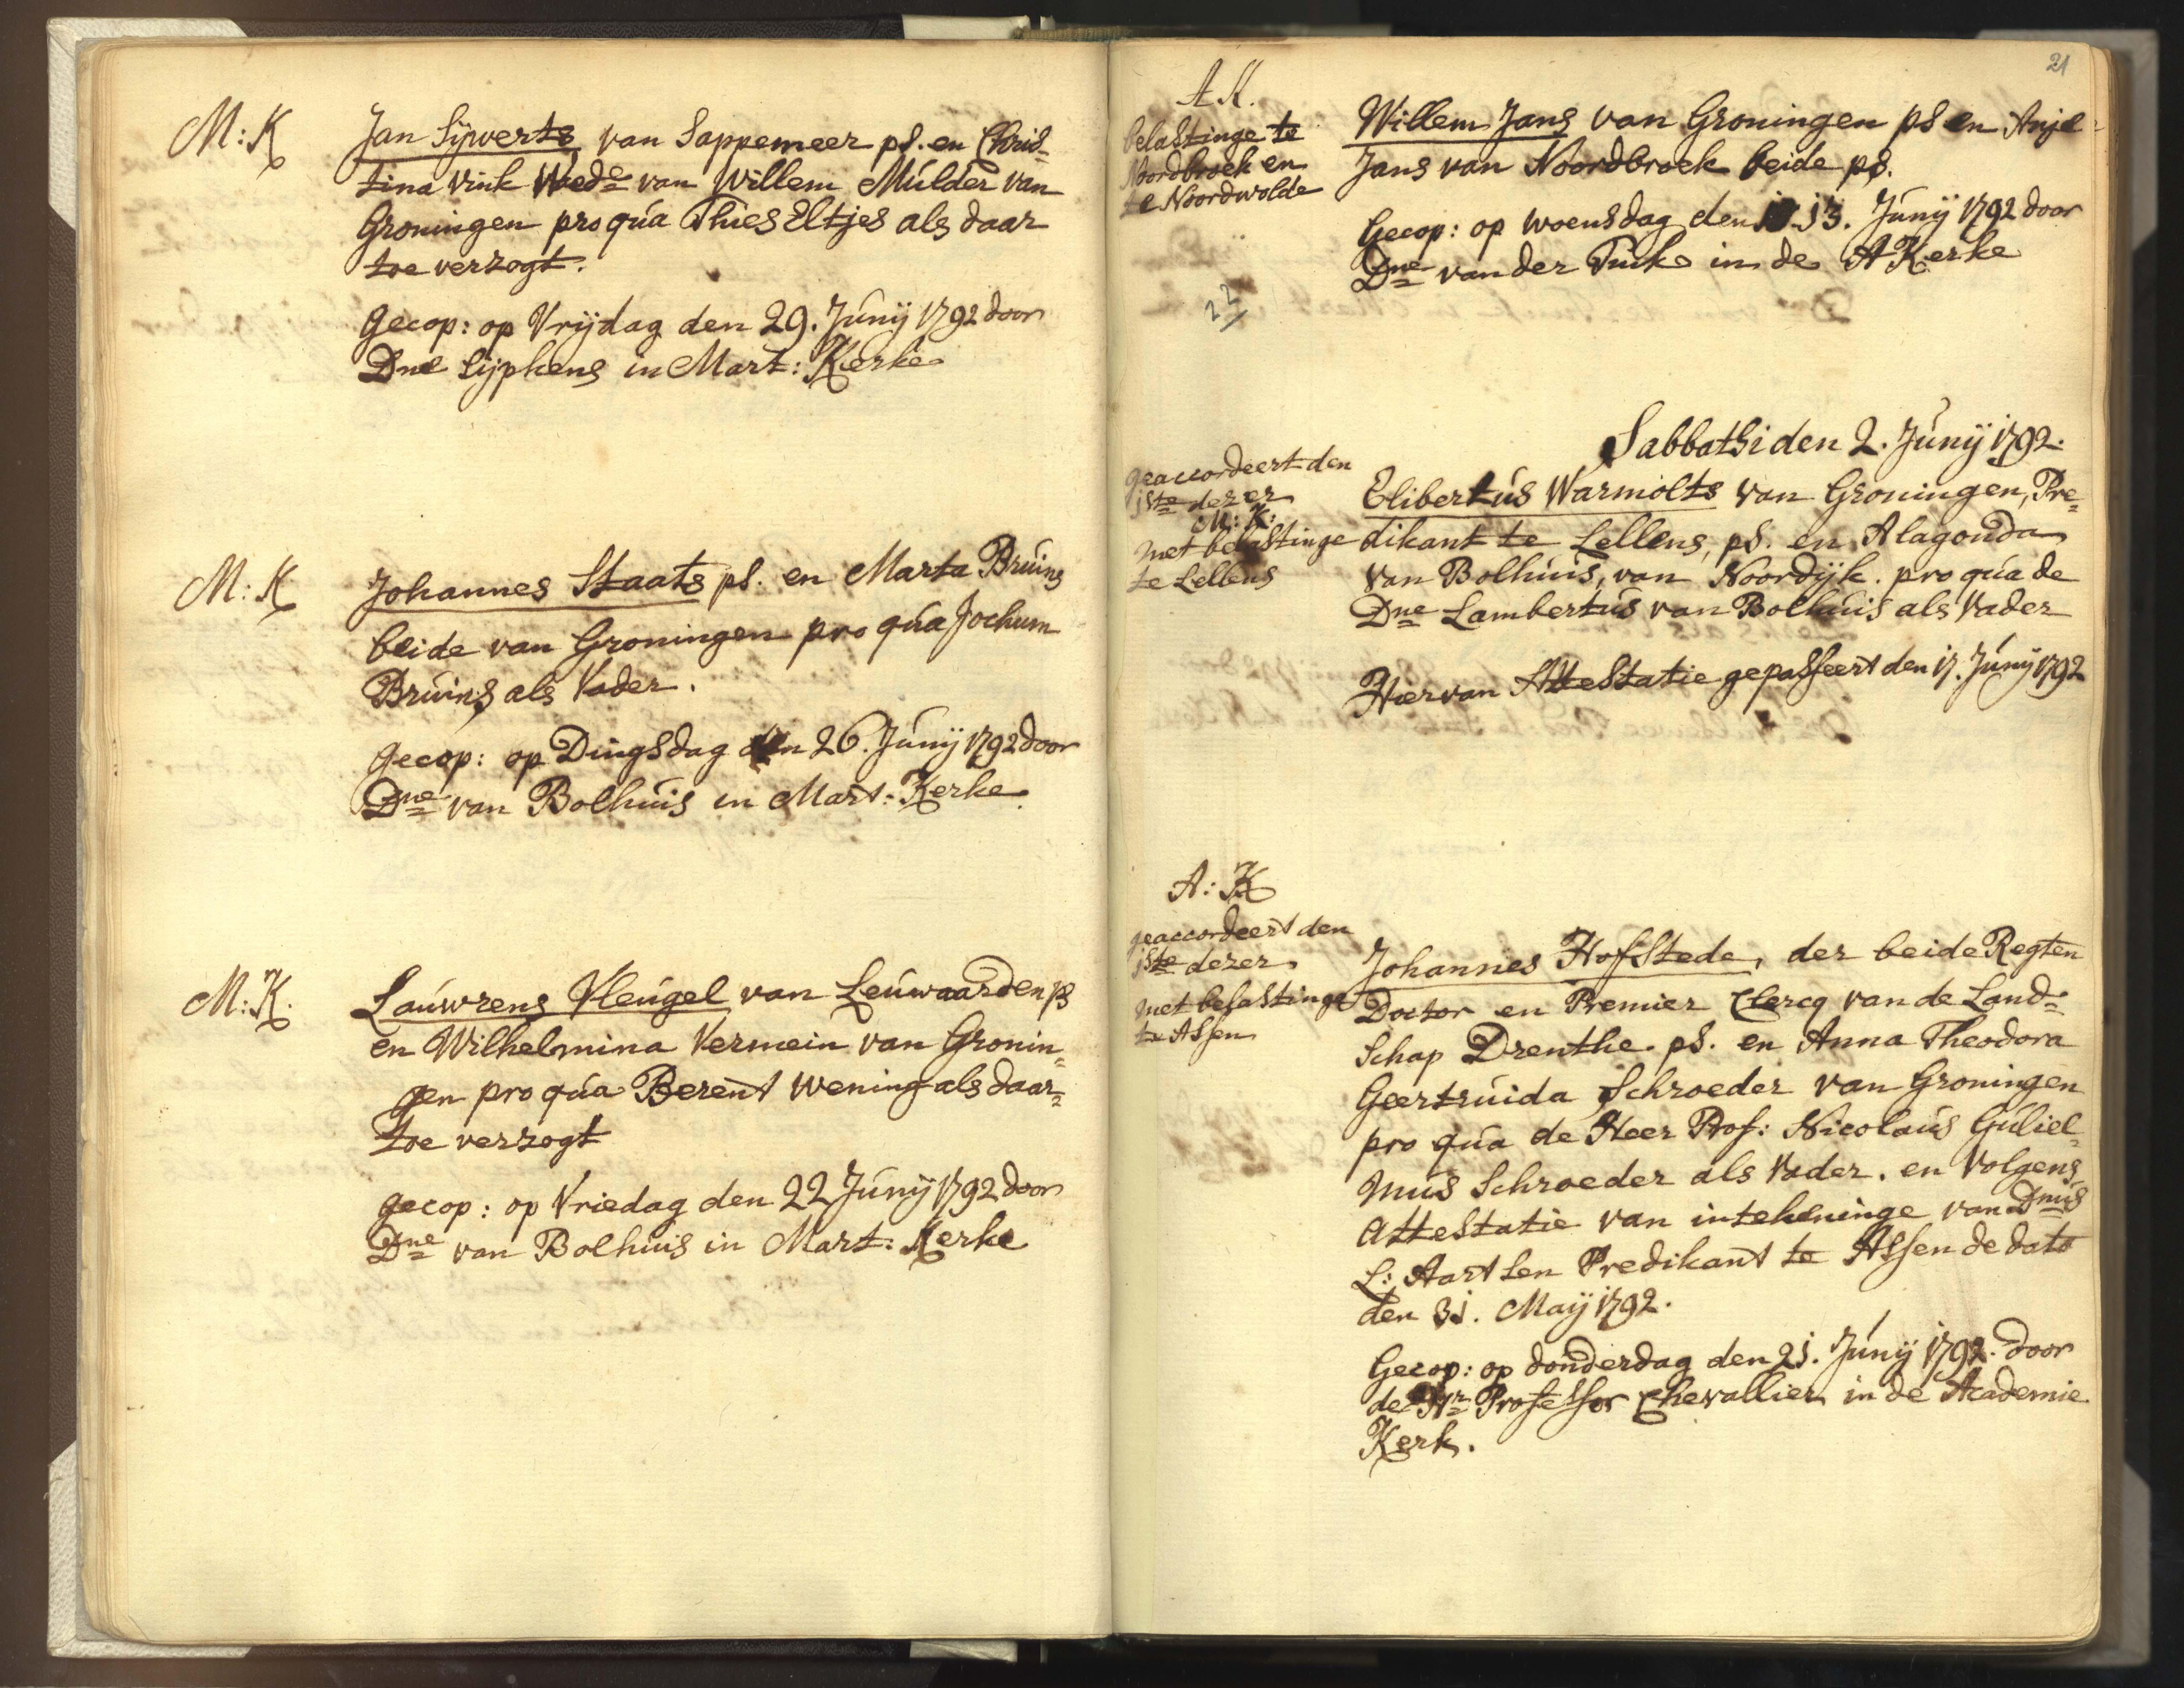 M: K
Jan Sijwerts, van Sappemeer ps. en Chris-
tina Vink Wede van Willem Mulder van
Groningen pro qua Thies Eltjes als daar
toe verzogt.
Gecop: op Vrijdag den 29. Junij 1792 door
Dne Sijpkens in Mart: Kerke
M: K
Johannes Staats ps. en Marta Bruins
beide van Groningen pro qua Jochum
Bruins als Vader.
gecop: op Dingsdag den 26. Junij 1792 door
Dne van Bolhuis in Mart: Kerke
M: K.
Lauwrens Vleugel van Leuwaarden ps
en Wilhelmina Vermein van Gronin=
gen pro qua Berent Wening als daar=
toe verzogt
gecop: op Vriedag den 22 Junij 1792 door
Dne van Bolhuis in Mart: Kerke
21
A K.
belastinge te
Noordbroek en
te Noordwolde
22
Willem Jans van Groningen ps en Anje
Jans van Noordbroek beide ps.
Gecop: op woensdag den 13. Junij 1792 door
Dne van der Tuuk in de A Kerke
Sabbathi den 2. Junij 1792.
geaccordeert den
1ste dezer
M: K:
met belastinge
te Lellens
Elibertus Warmolts van Groningen, Pre=
dikant te Lellens, ps. en Alagonda
van Bolhuis, van Noordijk. pro qua de
Dne Lambertus van Bolhuis als Vader
Hiervan Attestatie gepasseert den 17. Junij 1792
A: K
geaccordeert den
1ste dezer
met belastinge
te Assen
Johannes Hofstede, der beide Regten
Doctor en Premier Clercq van de Land=
schap Drenthe ps. en Anna Theodora
Geertruida Schroeder van Groningen
pro qua de Heer Prof: Nicolaus Guliel=
mus Schroeder als Vader. en Volgens
Attestatie van intekeninge van Dnus
L: Aartsen Predikant te Assen de dato
den 31. Maij 1792.
Gecop: op donderdag den 21. Junij 1792. door
de Hr Professor Chevallier in de Academie
Kerk.